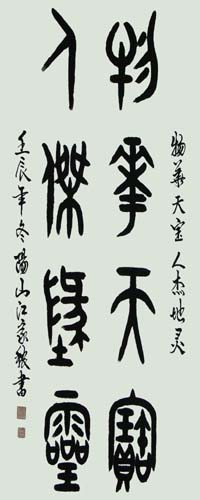 物華天寶
人傑地靈
物华天宝 人杰地灵
壬辰年冬陽山江家欽書